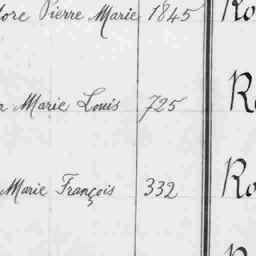 Pierre Marie 1845
Marie Louis 725
Marie François 332